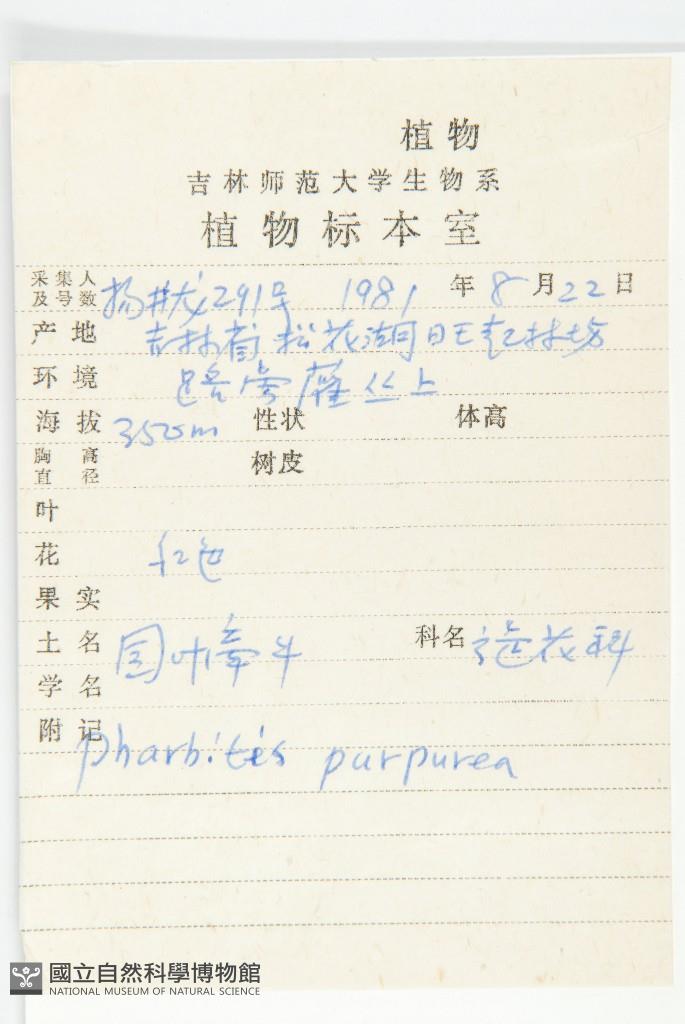 植物
吉林师范大学生物系
植物标本室
采集人及号数 杨井龙291号 1981年8月22日
产地 吉林省松花湖旺起林场
环境 路旁灌丛上
海拔 350m 性状 体高
胸高直径 树皮
叶
花 红色
果实
土名 园叶牵牛 科名 旋花科
学名
附记
Pharbites purpurea
國立自然科學博物館
NATIONAL MUSEUM OF NATURAL SCIENCE